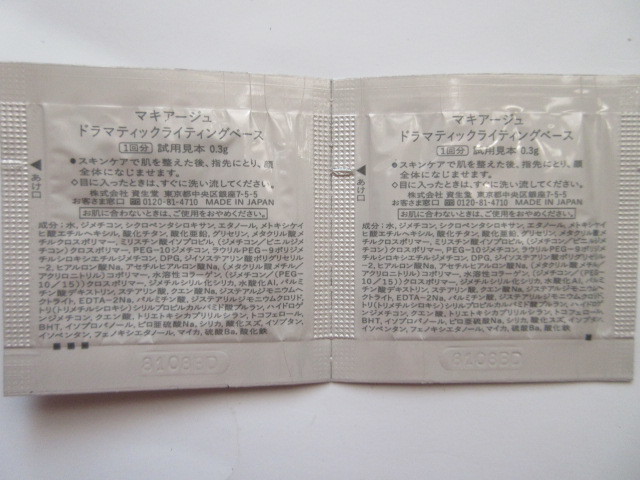 マキアージュ
ドラマティックライティングベース
1回分 試用見本 0.3g
●スキンケアで肌を整えた後、指先にとり、顔
全体になじませます。
◇目に入ったときは、すぐに洗い流してください。
株式会社 資生堂 東京都中央区銀座7-5-5
お客さま窓口 0120-81-4710 MADE IN JAPAN
お肌に合わないときは、ご使用をおやめください。
成分:水、ジメチコン、シクロペンタシロキサン、エタノール、メトキシケイ
ヒ酸エチルヘキシル、酸化チタン、酸化亜鉛、グリセリン、メタクリル酸メ
チルクロスポリマー、ミリスチン酸イソプロピル、(ジメチコン/ビニルジ
メチコン)クロスポリマー、PEG-10ジメチコン、ラウリルPEG-9ポリジメ
チルシロキシエチルジメチコン、DPG、ジイソステアリン酸ポリグリセリル
-2、ヒアルロン酸Na、アセチルヒアルロン酸Na、(メタクリル酸メチル/
アクリロニトリル)コポリマー、水溶性コラーゲン、(ジメチコン/(PEG-
10/15))クロスポリマー、ジメチルシリル化シリカ、水酸化Al、パルミ
チン酸デキストリン、ステアリン酸、クエン酸Na、ジステアルジモニウムヘ
クトライト、EDTA-2Na、パルミチン酸、ジステアリルジモニウムクロリド、
トリ(トリメチルシロキシ)シリルプロピルカルバミド酸プルラン、ハイドロゲ
ンジメチコン、クエン酸、トリエトキシカプリリルシラン、トコフェロール、
BHT、イソプロパノール、ピロ亜硫酸Na、シリカ、酸化スズ、イソブタン、
イソペンタン、フェノキシエタノール、マイカ、硫酸Ba、酸化鉄
あけ口
マキアージュ
ドラマティックライティングベース
1回分 試用見本 0.3g
●スキンケアで肌を整えた後、指先にとり、顔
全体になじませます。
◇目に入ったときは、すぐに洗い流してください。
株式会社 資生堂 東京都中央区銀座7-5-5
お客さま窓口 0120-81-4710 MADE IN JAPAN
お肌に合わないときは、ご使用をおやめください。
成分:水、ジメチコン、シクロペンタシロキサン、エタノール、メトキシケイ
ヒ酸エチルヘキシル、酸化チタン、酸化亜鉛、グリセリン、メタクリル酸メ
チルクロスポリマー、ミリスチン酸イソプロピル、(ジメチコン/ビニルジ
メチコン)クロスポリマー、PEG-10ジメチコン、ラウリルPEG-9ポリジメ
チルシロキシエチルジメチコン、DPG、ジイソステアリン酸ポリグリセリル
-2、ヒアルロン酸Na、アセチルヒアルロン酸Na、(メタクリル酸メチル/
アクリロニトリル)コポリマー、水溶性コラーゲン、(ジメチコン/(PEG-
10/15))クロスポリマー、ジメチルシリル化シリカ、水酸化Al、パルミ
チン酸デキストリン、ステアリン酸、クエン酸Na、ジステアルジモニウムヘ
クトライト、EDTA-2Na、パルミチン酸、ジステアリルジモニウムクロリド、
トリ(トリメチルシロキシ)シリルプロピルカルバミド酸プルラン、ハイドロゲ
ンジメチコン、クエン酸、トリエトキシカプリリルシラン、トコフェロール、
BHT、イソプロパノール、ピロ亜硫酸Na、シリカ、酸化スズ、イソブタン、
イソペンタン、フェノキシエタノール、マイカ、硫酸Ba、酸化鉄
あけ口